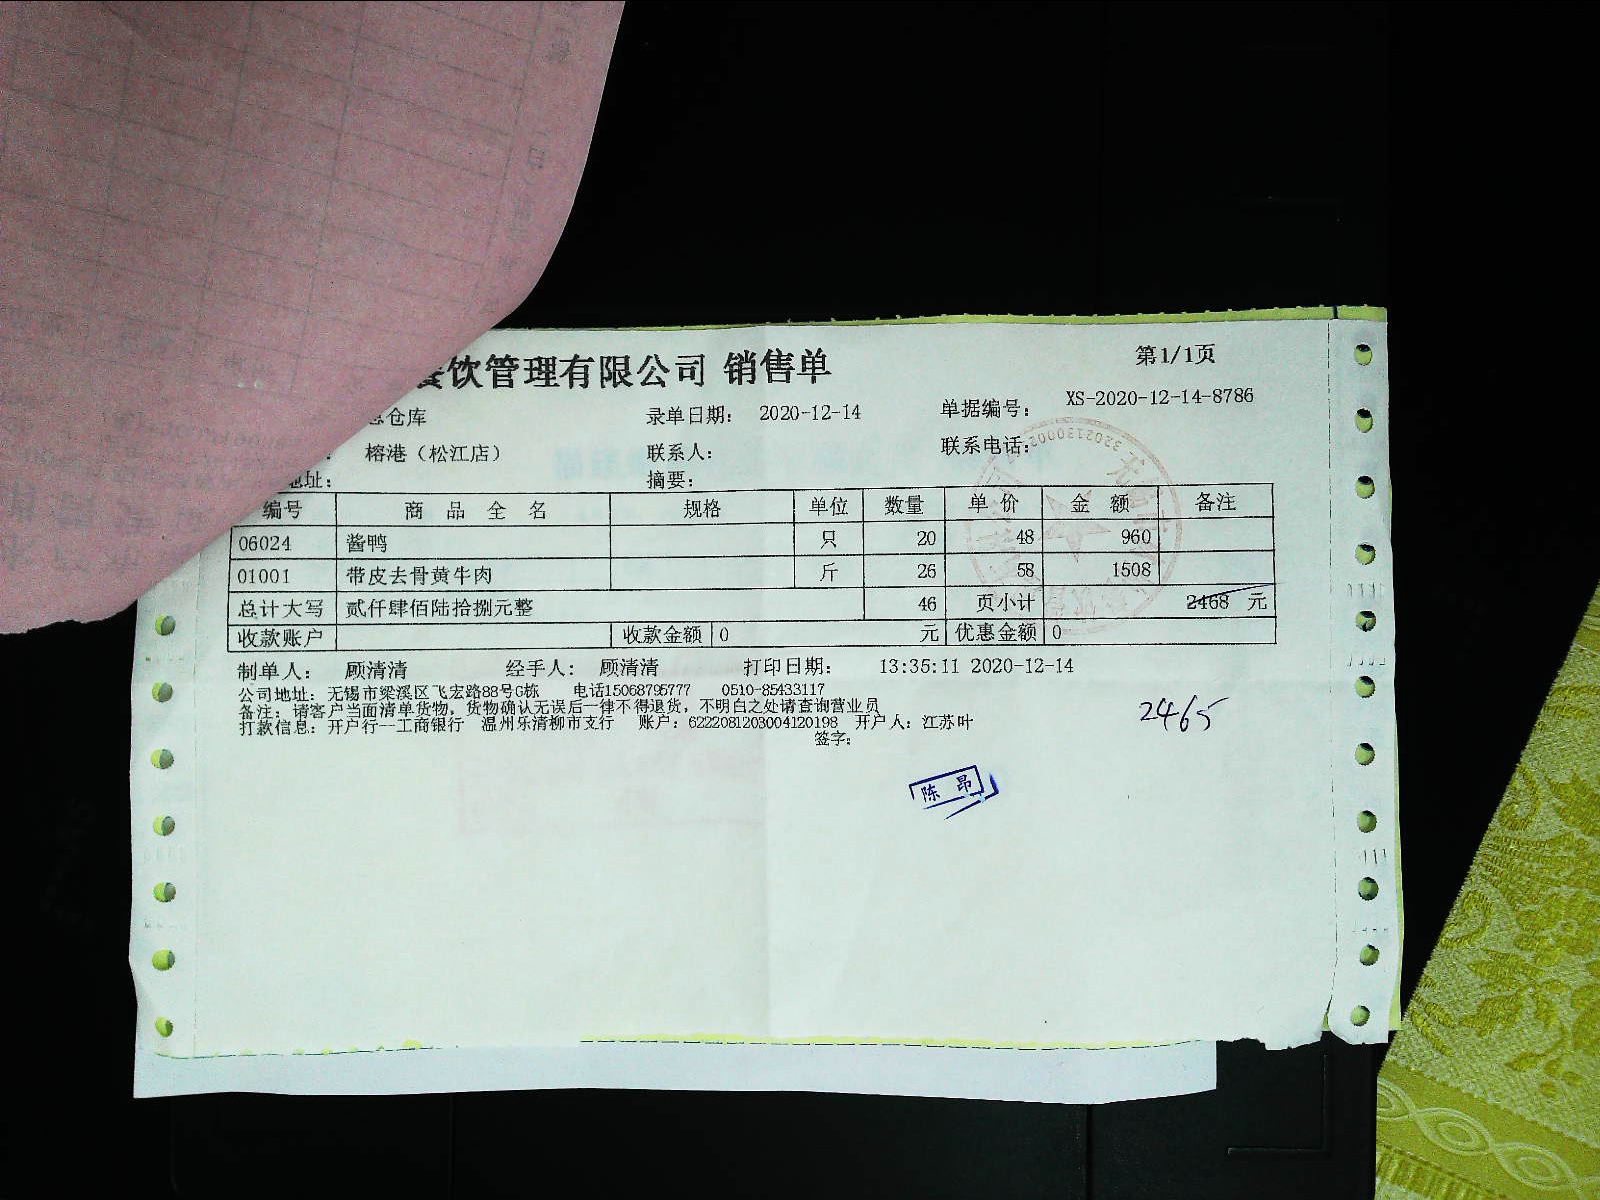 饮管理有限公司 销售单
第1/1页
仓库 录单日期： 2020-12-14 单据编号： XS-2020-12-14-8786
榕港（松江店） 联系人： 联系电话：
地址： 摘要：
编号 商品全名 规格 单位 数量 单价 金额 备注
06024 酱鸭 只 20 48 960
01001 带皮去骨黄牛肉 斤 26 58 1508
总计大写 贰仟肆佰陆拾捌元整 46 页小计 2468 元
收款账户 收款金额 0 元 优惠金额 0
制单人： 顾清清 经手人： 顾清清 打印日期： 13:35:11 2020-12-14
公司地址：无锡市梁溪区飞宏路88号G栋 电话15068795777 0510-85433117
备注：请客户当面清单货物，货物确认无误后一律不得退货，不明白之处请查询营业员
打款信息：开户行--工商银行 温州乐清柳市支行 账户：6222081203004120198 开户人：江苏叶
签字：
2465
陈昂